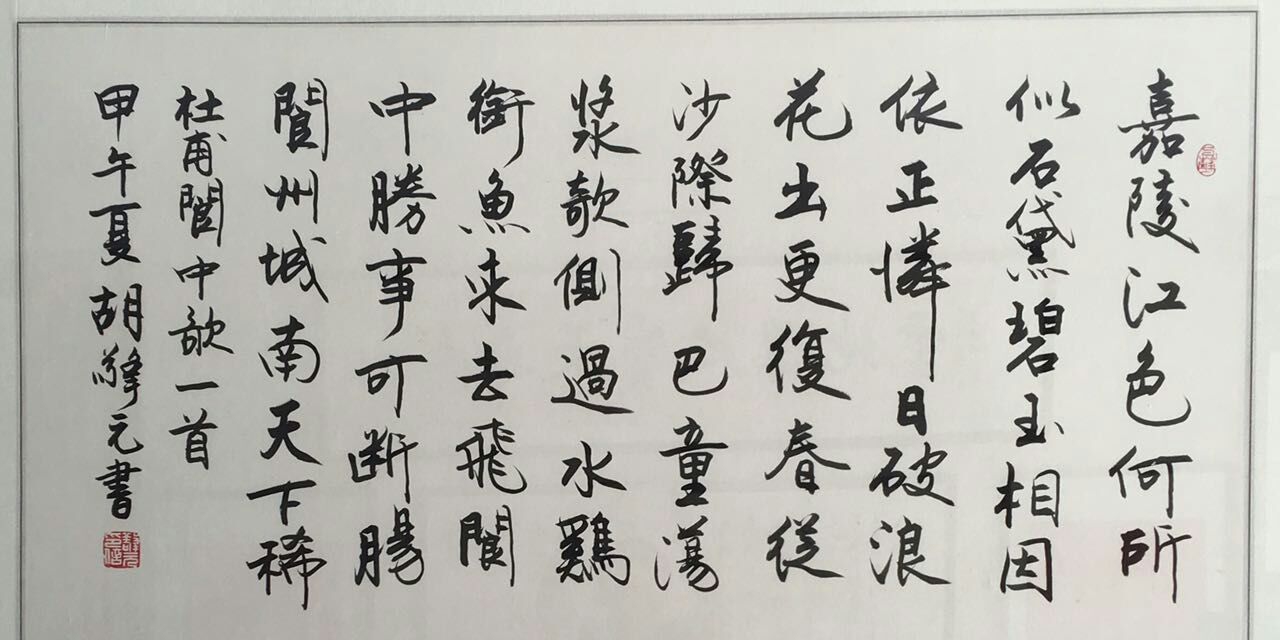 嘉陵江色何所
似石黛碧玉相因
依正憐日破浪
花出更復春從
沙際歸巴童蕩
漿欹側過水鷄
銜魚來去飛閬
中勝事可斷腸
閬州城南天下稀
杜甫閬中歌一首
甲午夏胡峰元書